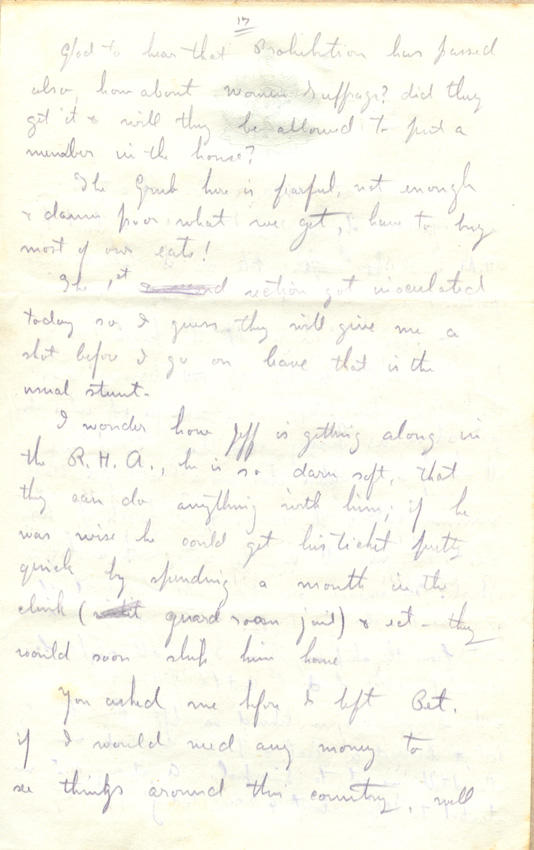 17
Glad to hear that Prohibition has passed
also, how about women Suffrage? did they
get it & will they be allowed to put a
member in the house?
The Grub here is fearful, not enough
& damn poor what we get, have to buy
most of our eats!
The 1st section got inoculated
today so I guess they will give me a
shot before I go on leave that is the
usual stunt.
I wonder how Jeff is getting along in
the R.H.A., he is so darn soft, that
they can do anything with him; if he
was wise he could get his ticket pretty
quick, by spending a month in the
clink ( guard room jail) & ect - they
would soon ship him home
You asked me before I left Pet.
if I would need any money to
see things around this country, well